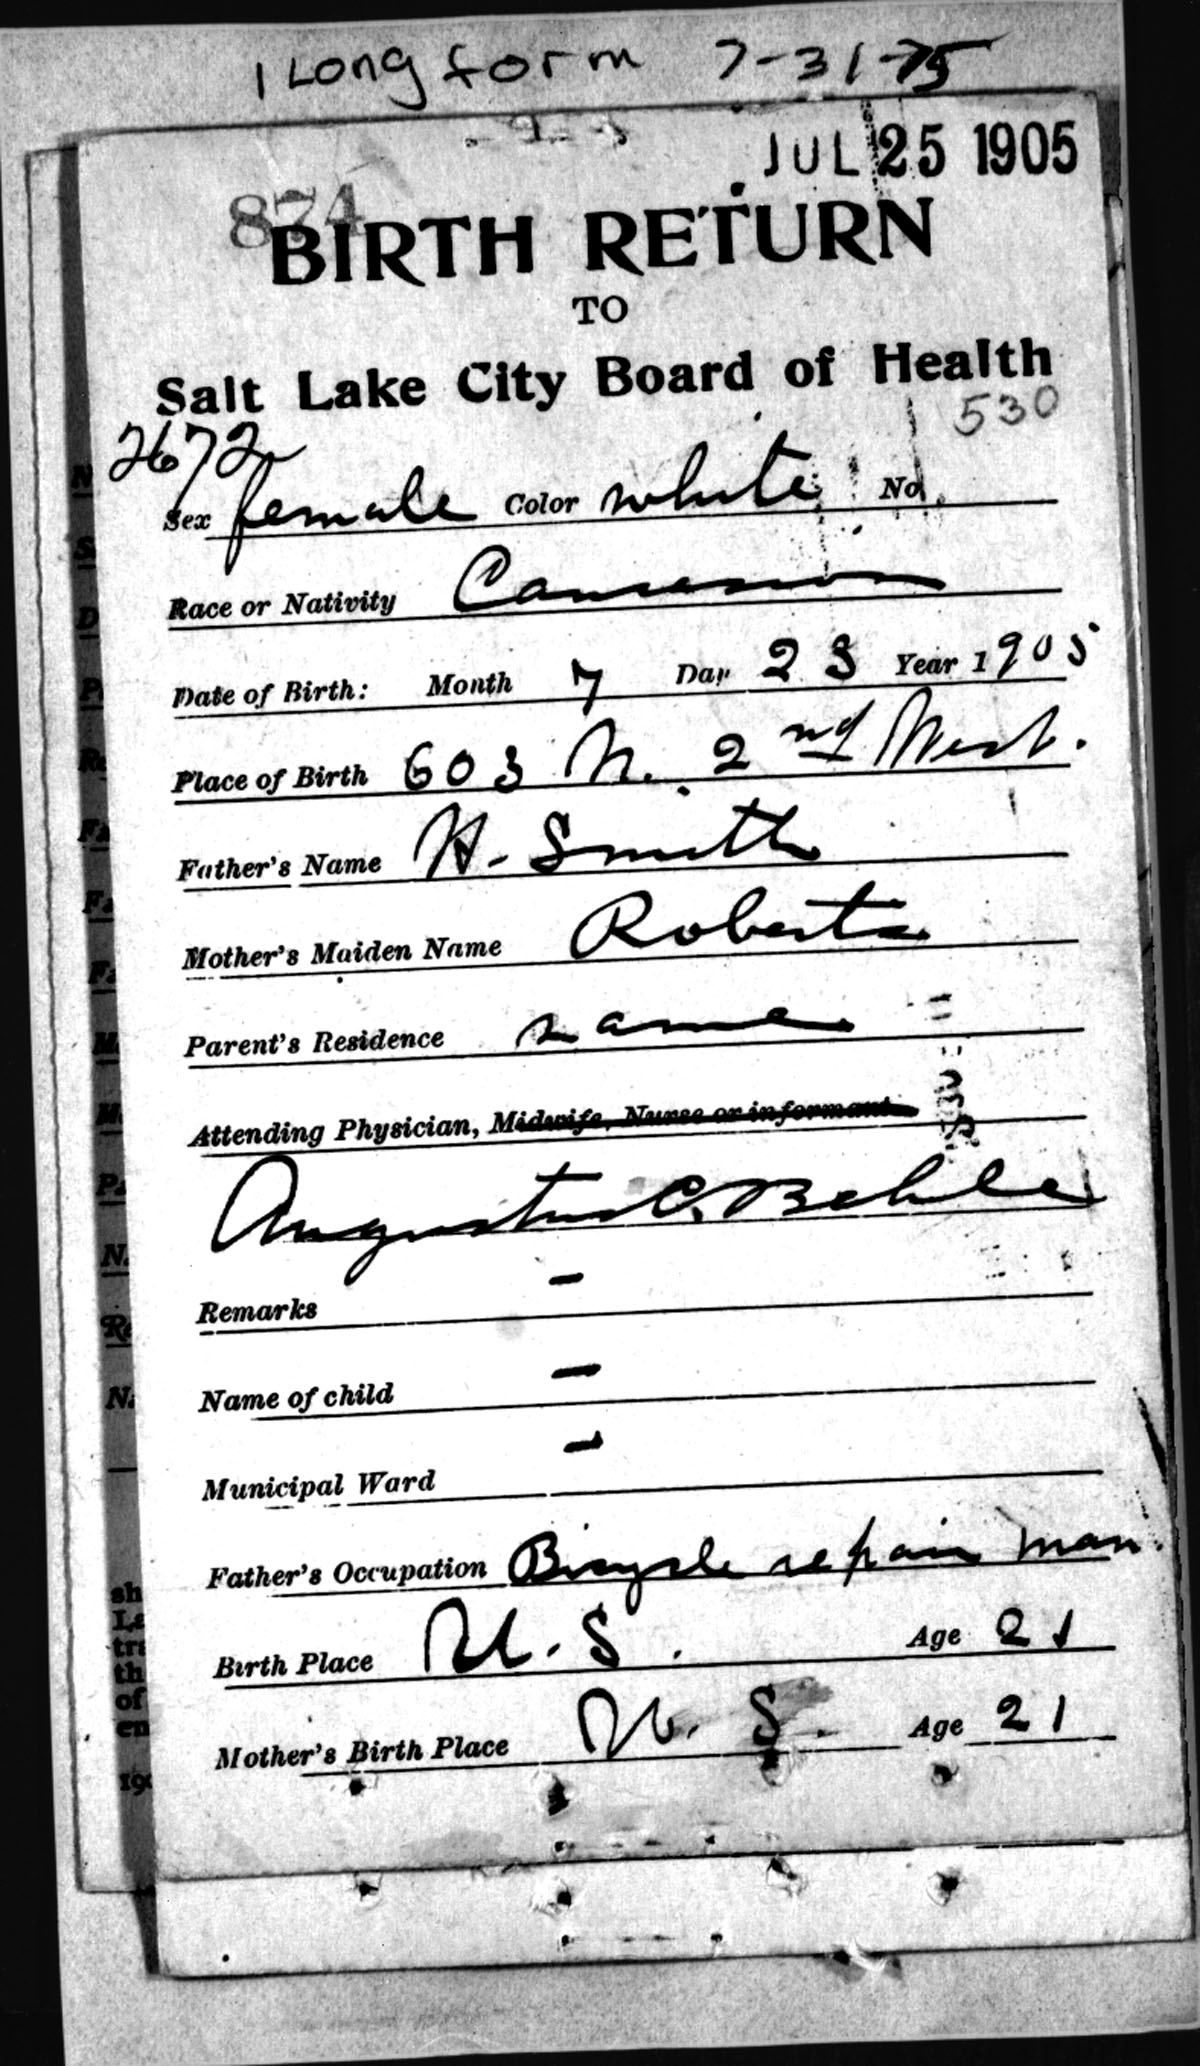 1 Long form 7-31-75
JUL 25 1905
874
BIRTH RETURN
TO
Salt Lake City Board of Health
530
2672
Sex female Color white No.
Race or Nativity Caucasion
Date of Birth: Month 7 Day 23 Year 1905
Place of Birth 603 N. 2nd West.
Father's Name H. Smith
Mother's Maiden Name Roberts
Parent's Residence same
Attending Physician, Midwife, Nurse or informant
Augustus C. Behle
Remarks -
Name of child -
Municipal Ward -
Father's Occupation Bicycle repair man.
Birth Place U. S. Age 21
Mother's Birth Place U. S. Age 21